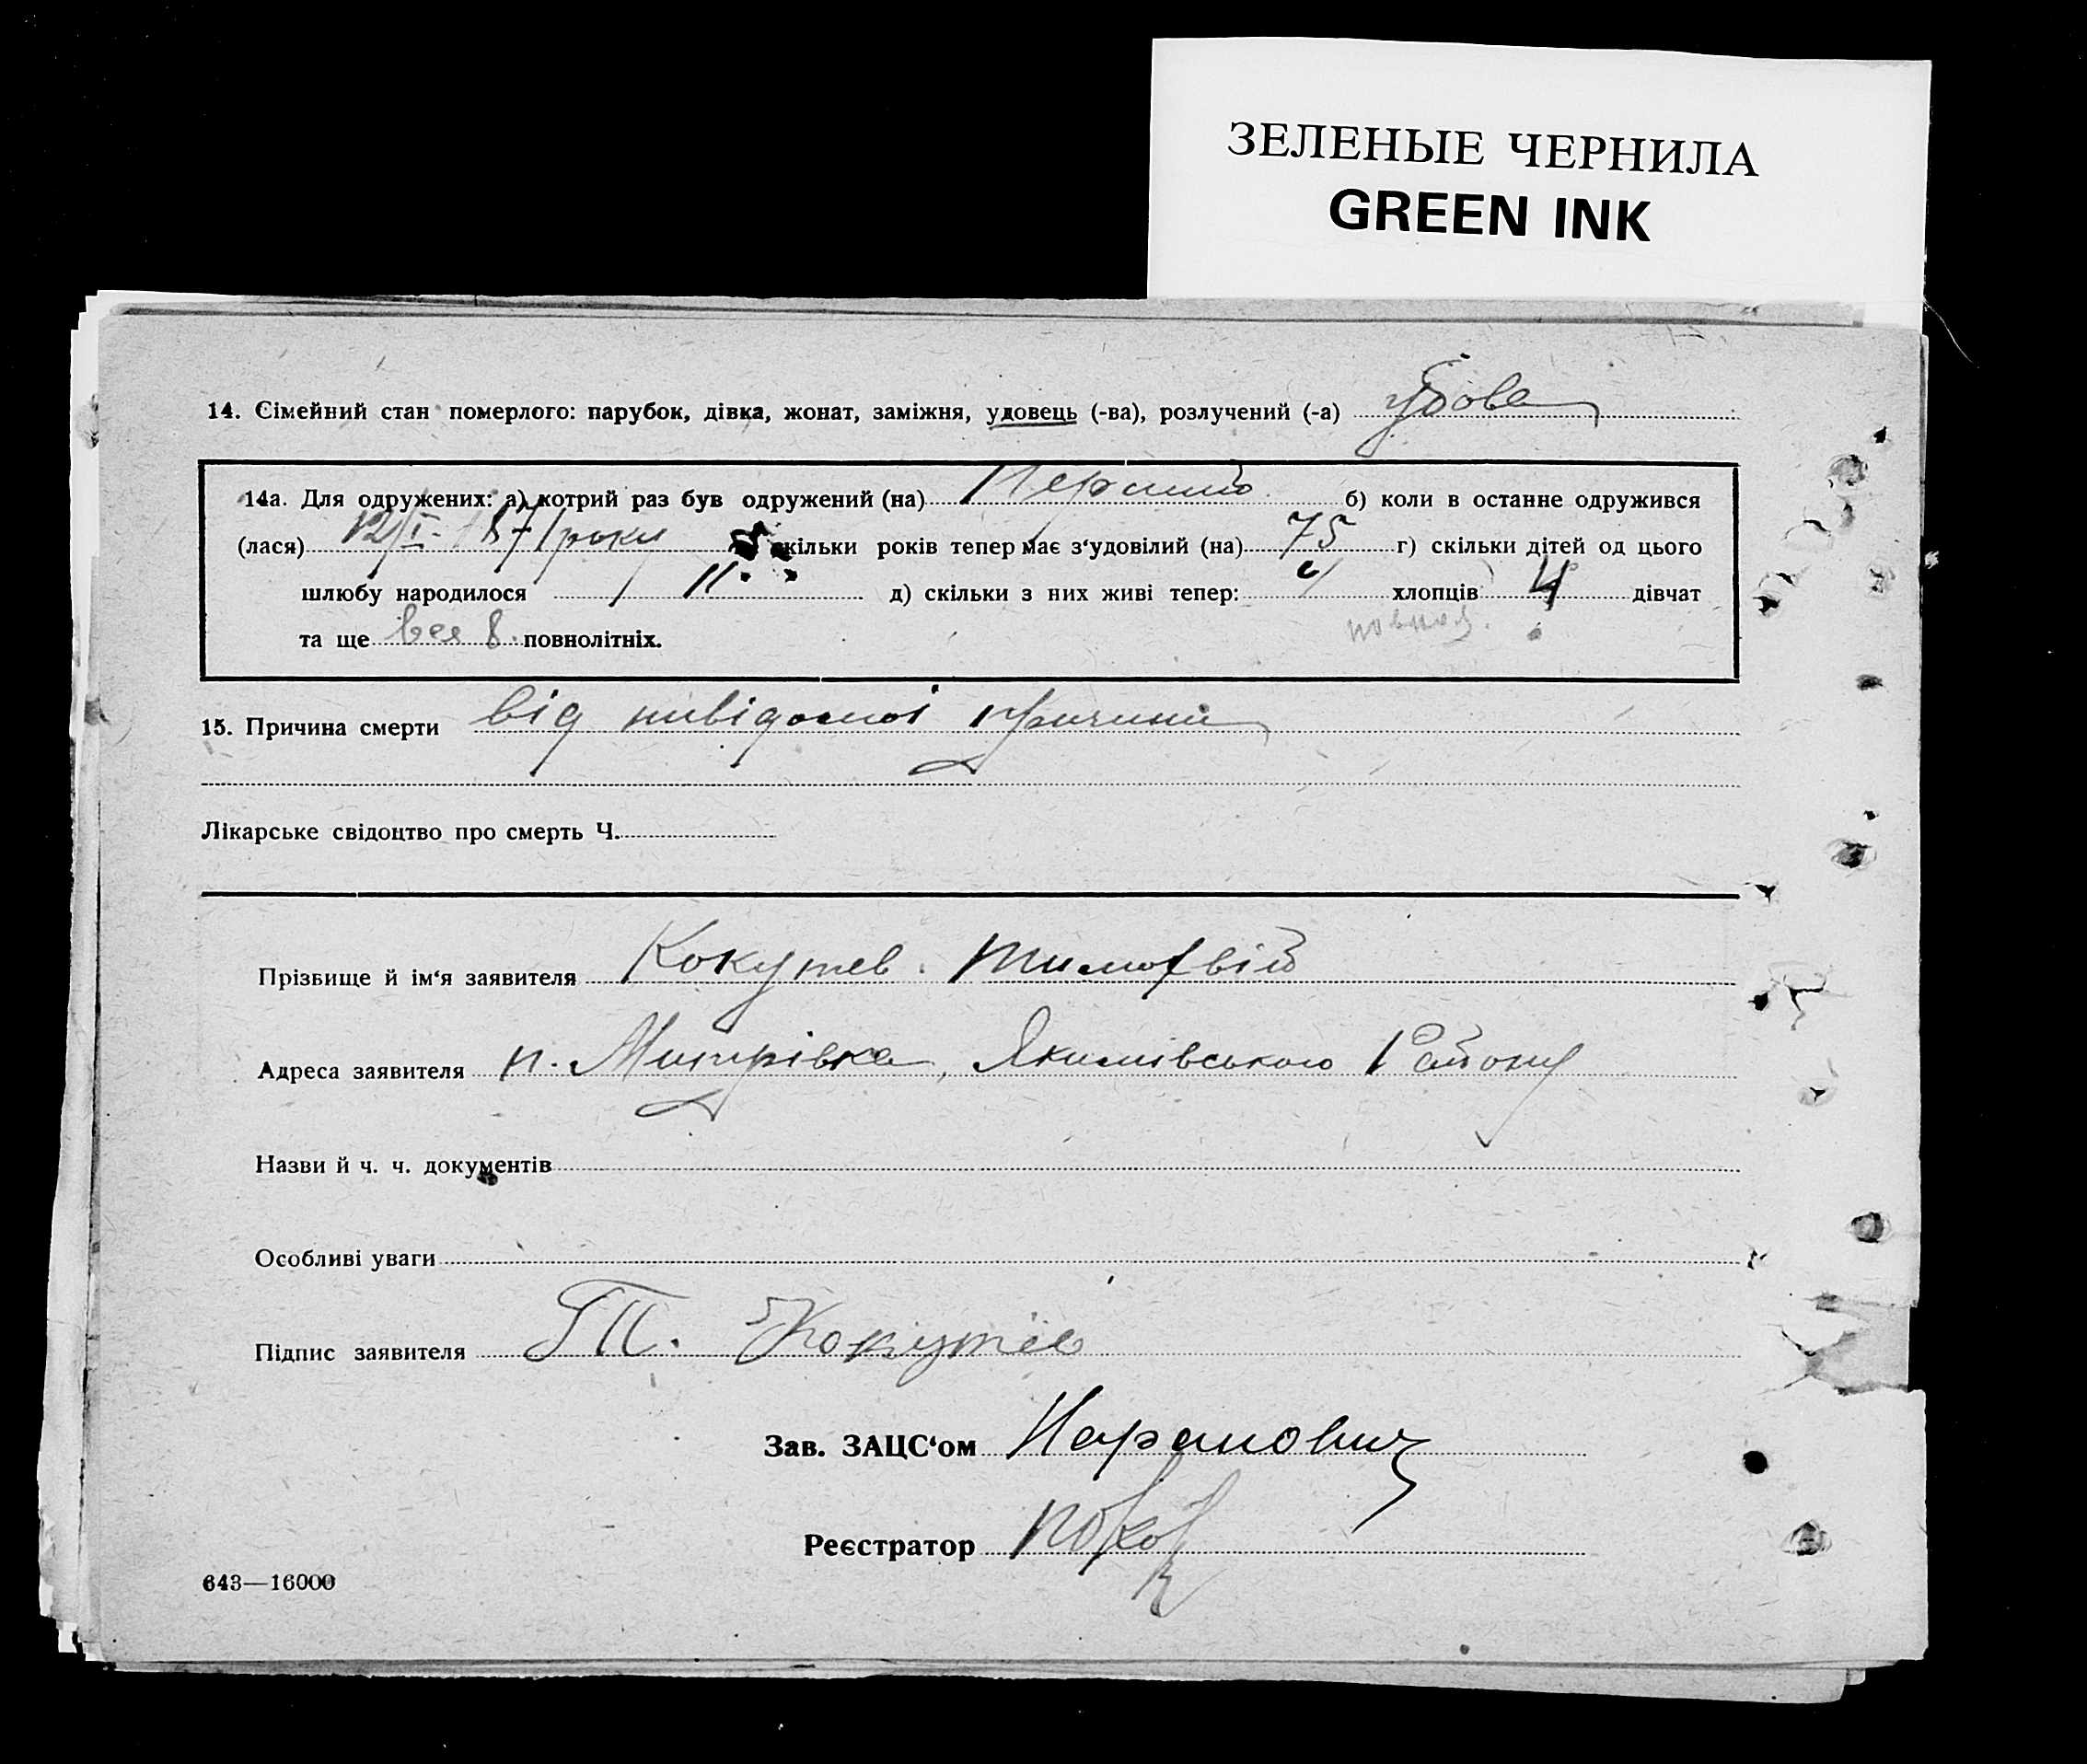 ЗЕЛЕНЫЕ ЧЕРНИЛА
GREEN INK
14. Сімейний стан померлого: парубок, дівка, жонат, заміжня, удовець (-ва), розлучений (-а) удова
14а. Для одружених: а) котрий раз був одружений (на) б) коли в останне одружився
(лася) 12/I- 1871 року скільки років тепер має з‘удовілий (на) 75 г) скільки дітей од цього
шлюбу народилося 11. д) скільки з них живі тепер: 4 хлопців 4 дівчат
та ще всі 8. повнолітніх. повнол.
15. Причина смерти від невідомої причини
Лікарське свідоцтво про смерть Ч.
Прізвище й ім‘я заявителя Кокутев. Тимофвій
Адреса заявителя п. Митрівка, Якимівського Району
Назви й ч. ч. документів
Особливі уваги
Підпис заявителя Т. Кокутев
Зав. ЗАЦС‘ом
Реєстратор
643—16000